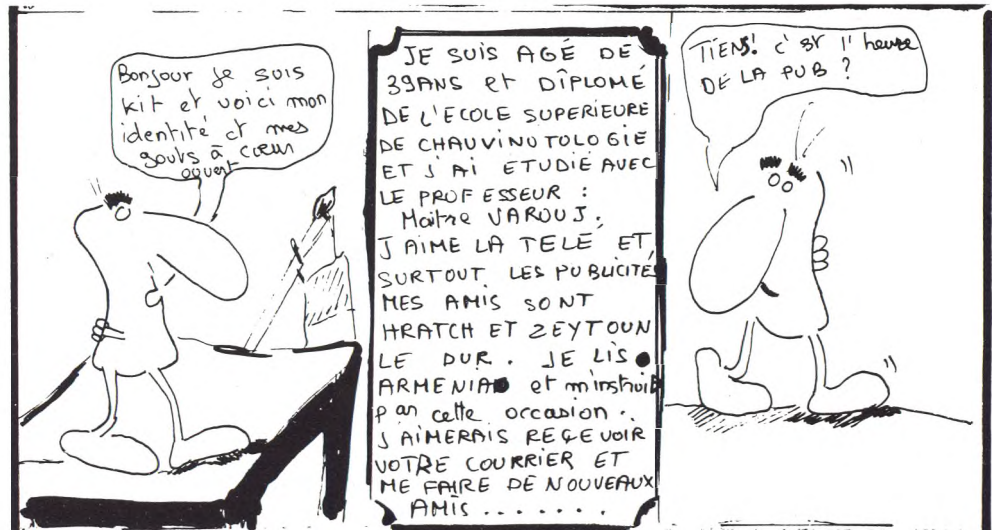 Bonjour je suis
kit et voici mon
identité et mes
gouts à cœur
ouvert
JE SUIS AGÉ DE
39ANS et DÎPLOMÉ
DE L'ECOLE SUPERIEURE
DE CHAUVINOTOLOGIE
ET J'AI ETUDIÉ AVEC
LE PROFESSEUR :
Maître VAROUJ.
J'AIME LA TELÉ ET
SURTOUT LES PUBLICITÉS
MES AMIS SONT
HRATCH ET ZEYTOUN
LE DUR. JE LIS
ARMENIA et m'instruis
par cette occasion.
J'AIMERAIS REÇEVOIR
VOTRE COURRIER ET
ME FAIRE DE NOUVEAUX
AMIS .......
TIENS! c'est l'heure
DE LA PUB ?